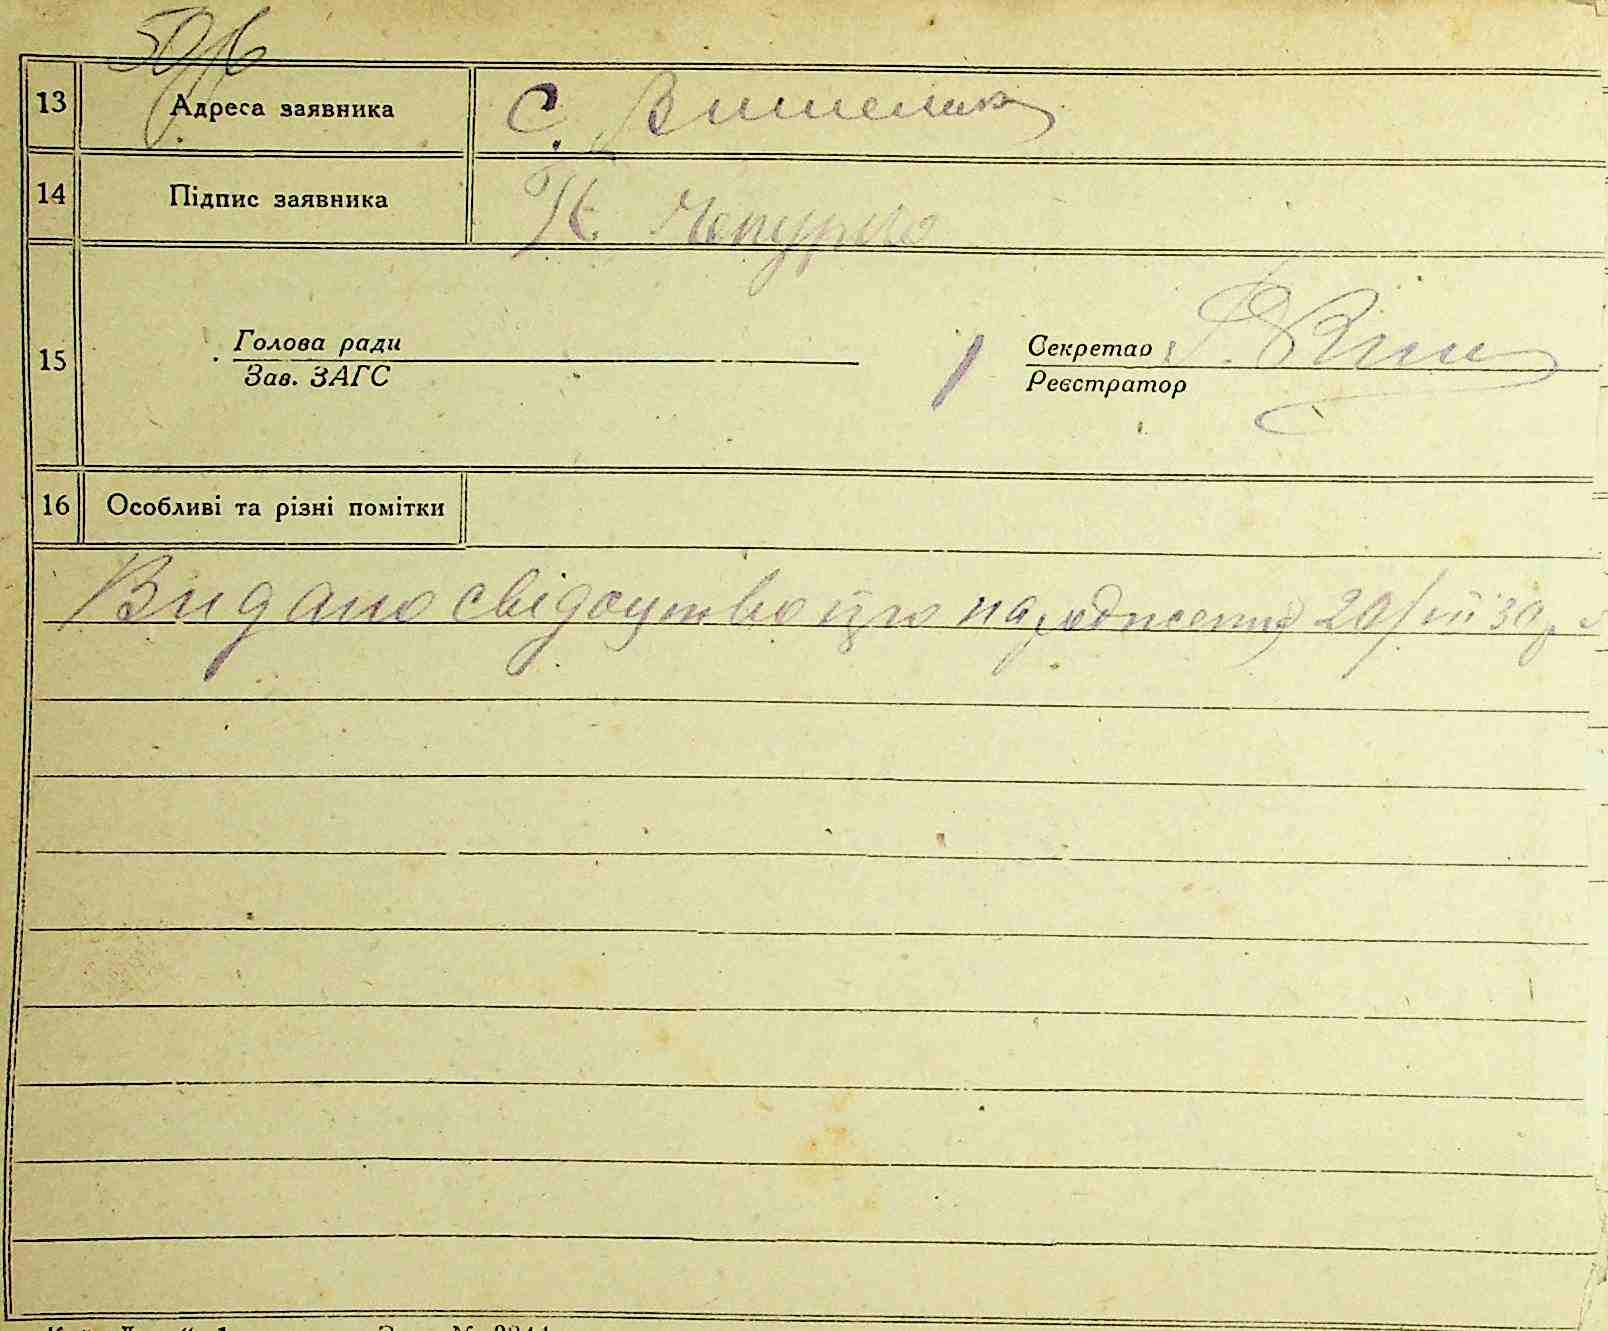 50/6
13 Адреса заявника С.
14 Підпис заявника К. Чепурко
15 Голова ради
Зав. ЗАГС
Секретар
Реєстратор
16 Особливі та різні помітки
Видано свідоцтво про народження 20/III 30р